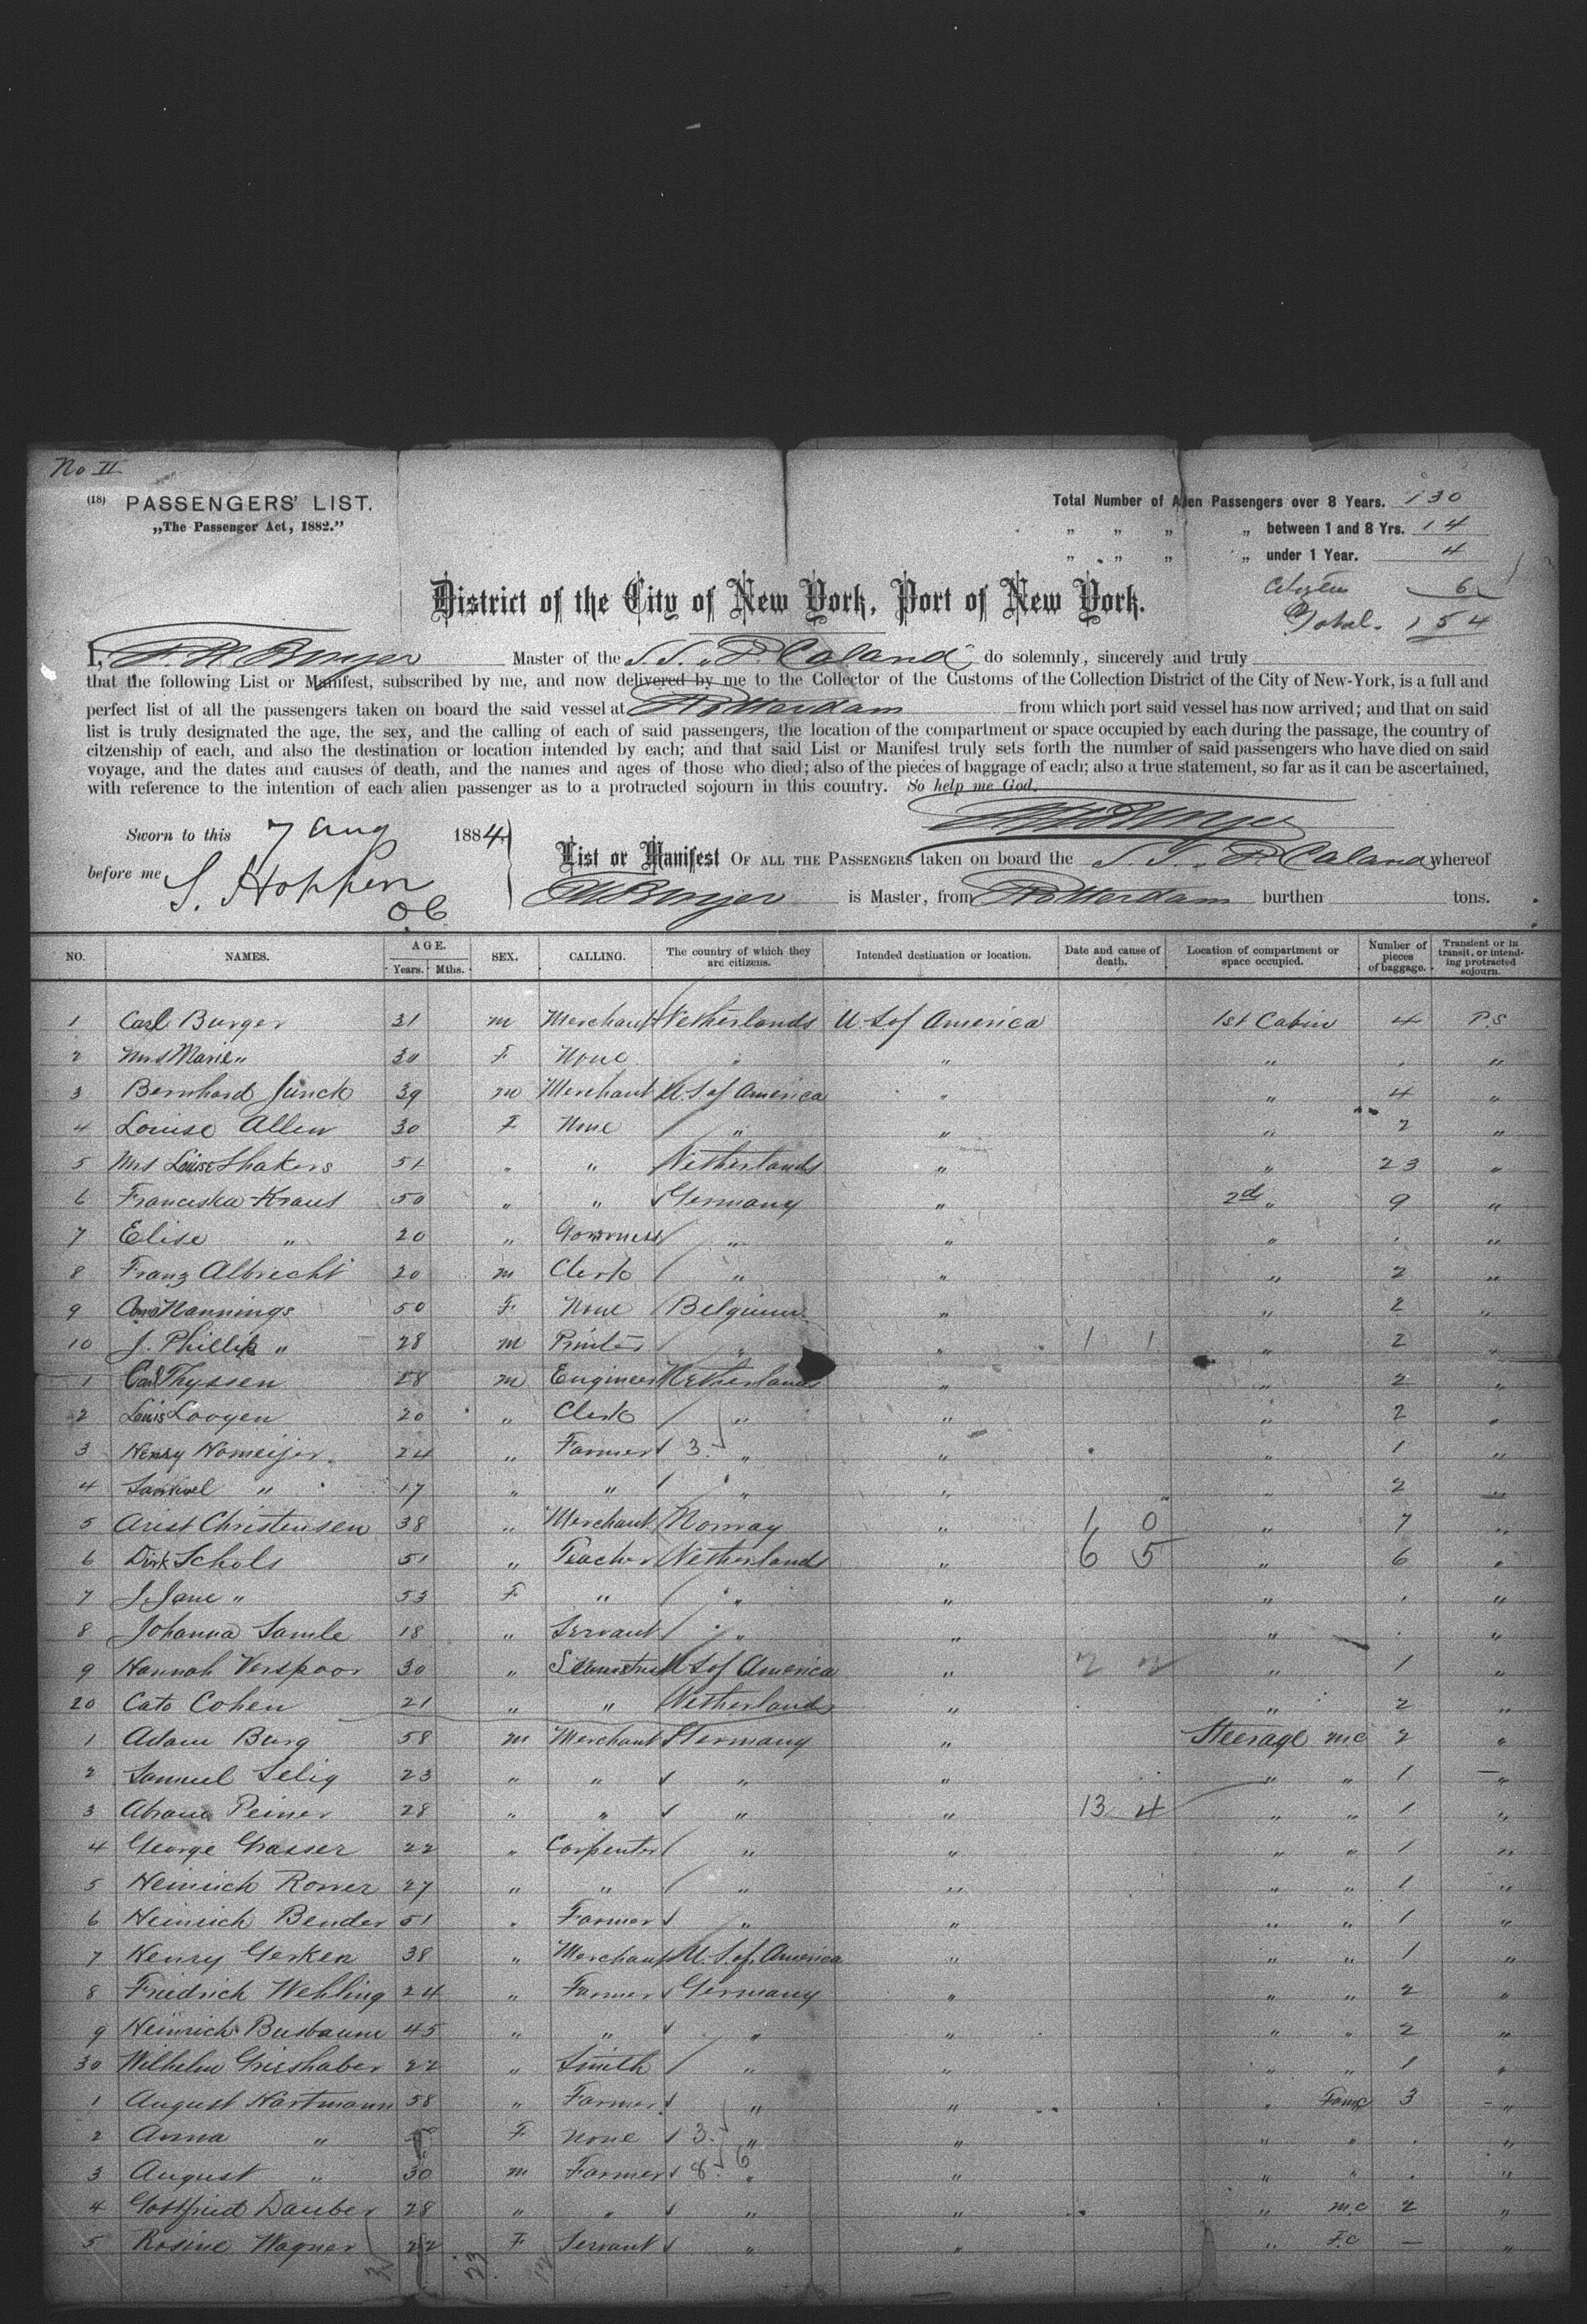 No II
(18) PASSENGERS' LIST.
„The Passenger Act, 1882."
Total Number of Alien Passengers over 8 Years. 130
„ „ „ „ between 1 and 8 Yrs. 14
„ „ „ „ under 1 Year. 4
Citizens 6
Total. 154
District of the City of New York, Port of New York.
I, Master of the S.S. „P. Caland" do solemnly, sincerely and truly
that the following List or Manifest, subscribed by me, and now delivered by me to the Collector of the Customs of the Collection District of the City of New-York, is a full and
perfect list of all the passengers taken on board the said vessel at Rotterdam from which port said vessel has now arrived; and that on said
list is truly designated the age, the sex, and the calling of each of said passengers, the location of the compartment or space occupied by each during the passage, the country of
citzenship of each, and also the destination or location intended by each; and that said List or Manifest truly sets forth the number of said passengers who have died on said
voyage, and the dates and causes of death, and the names and ages of those who died; also of the pieces of baggage of each; also a true statement, so far as it can be ascertained,
with reference to the intention of each alien passenger as to a protracted sojourn in this country. So help me God.
Sworn to this 7 Aug 1884
before me S. Hoppen
List or Manifest OF ALL THE PASSENGERS taken on board the S.S. „P. Caland whereof
is Master, from Rotterdam burthen tons.
NO. NAMES. AGE. Years. Mths. SEX. CALLING. The country of which they are citizens. Intended destination or location. Date and cause of death. Location of compartment or space occupied. Number of pieces of baggage. Transient or in transit, or intending protracted sojourn.
1 Carl Burger 31 m Merchant Netherlands U.S. of America 1st Cabin 4 P.S
2 Mrs Marie „ 30 F None „ „ „ „
3 Bernhard Junck 39 m Merchant U.S. of America „ „ 4 „
4 Louise Allen 30 F None „ „ „ 2 „
5 Mrs Louise Shakers 51 „ „ Netherlands „ „ 23 „
6 Franciska Kraus 50 „ „ Germany „ 2d „ 9 „
7 Elise „ 20 „ Governess „ „ „ „
8 Franz Albrecht 20 m Clerk „ „ „ 2 „
9 Nannings 50 F None Belgium „ „ 2 „
10 J. Phillip „ 28 m Printer „ „ 1 1 „ 2 „
1 Carl Thyssen 28 m Engineer Netherlands „ „ 2 „
2 Louis Looyen 20 „ Clerk „ „ „ 2 „
3 Henry Homeijer 24 „ Farmer 3 „ „ „ 1 „
4 Samuel „ 17 „ „ „ „ „ 2 „
5 Arist Christensen 38 „ Merchant Norway „ 1 0 „ 7 „
6 Dirk Schols 51 „ Teacher Netherlands „ 6 5 „ 6 „
7 J. Jane „ 53 F „ „ „ „ „
8 Johanna Samle 18 „ Servant „ „ „ „
9 Hannah Verspoor 30 „ U.S of America „ „ 1 „
20 Cato Cohen 21 „ „ Netherlands „ „ 2 „
1 Adam Burg 58 m Merchant Germany „ Steerage m.c 2 „
2 Samuel Selig 23 „ „ „ „ „ „ 1 „
3 Abram Peiner 28 „ „ „ „ 13 4 „ „ 1 „
4 George Grasser 22 „ Carpenter „ „ „ „ 1 „
5 Heinrich Romer 27 „ „ „ „ „ „ 1 „
6 Heinrich Bender 51 „ Farmer „ „ „ „ 1 „
7 Henry Gerken 38 „ Merchant U.S. of America „ „ „ 1 „
8 Friedrich Wehling 24 „ Farmer Germany „ „ „ 2 „
9 Heinrich Busbaum 45 „ „ „ „ „ „ 2 „
30 Wilhelm Grieshaber 22 „ Smith „ „ „ „ 1 „
1 August Hartmann 58 „ Farmer „ „ „ Fam.c 3 „
2 Anna „ F None 3 „ „ „ „ „
3 August „ 30 m Farmer 8 6 „ „ „ „ „
4 Gottfried Dauber 28 „ „ „ „ „ m.c 2 „
5 Rosine Wagner 22 F Servant „ „ „ F.c — „